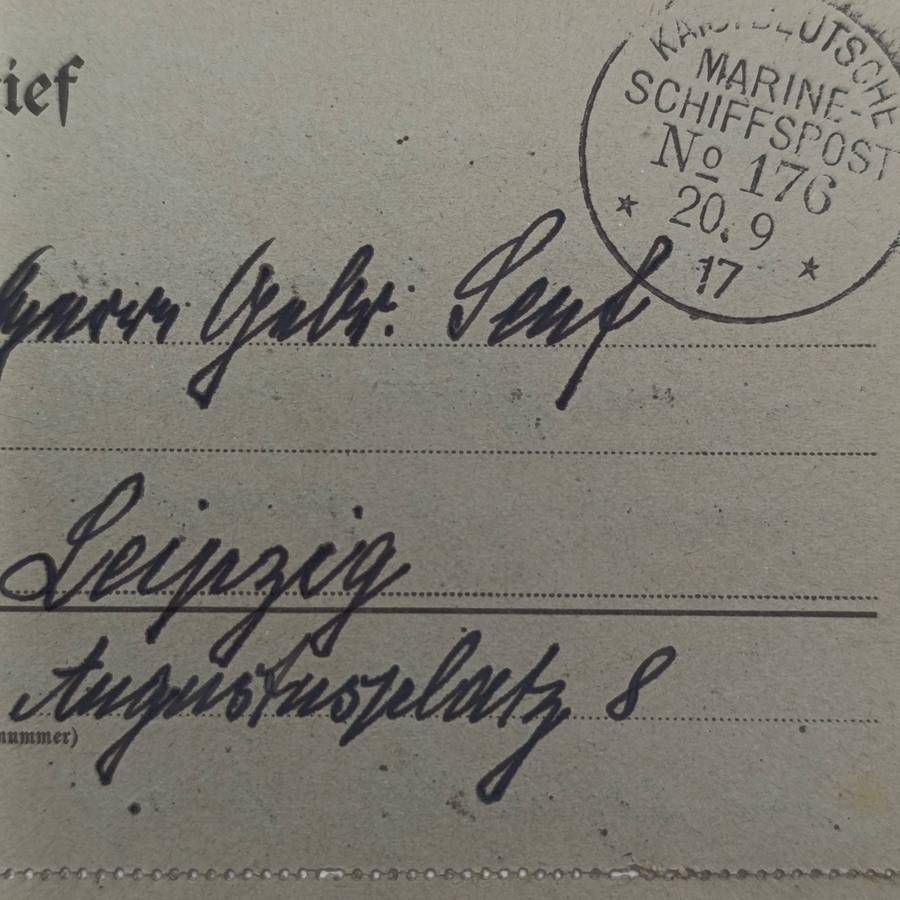 ief
KAIS. DEUTSCHE
MARINE-
SCHIFFSPOST
No 176
20. 9
17
Herrn Gebr. Senf
Leipzig
Augustusplatz 8
nummer)